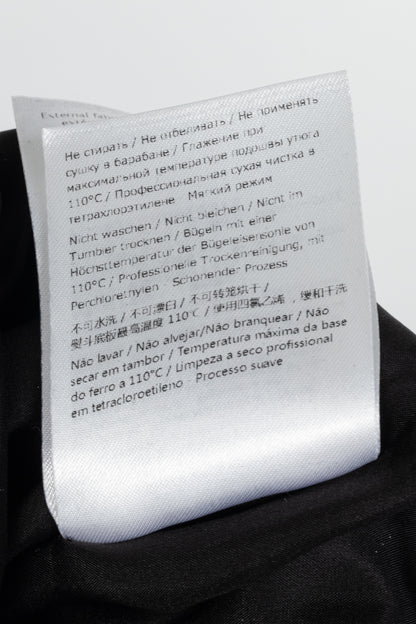 External fab
Не стирать / Не отбеливать / Не применять
сушку в барабане / Глажение при
максимальной температуре подошвы утюга
110°C / Профессиональная сухая чистка в
тетрахлорэтилене - Мягкий режим
Nicht waschen / Nicht bleichen / Nicht im
Tumbler trocknen / Bügeln mit einer
Höchsttemperatur der Bügeleisensonie von
110°C / Professionelle Trockenreinigung, mit
Perchlorethylen - Schonender Prozess
不可水洗 / 不可漂白 / 不可转笼烘干 /
熨斗底板最高温度 110℃ / 使用四氯乙烯 ，缓和干洗
Não lavar / Não alvejar/Não branquear / Não
secar em tambor / Temperatura máxima da base
do ferro a 110°C / Limpeza a seco profissional
em tetracloroetileno - Processo suave